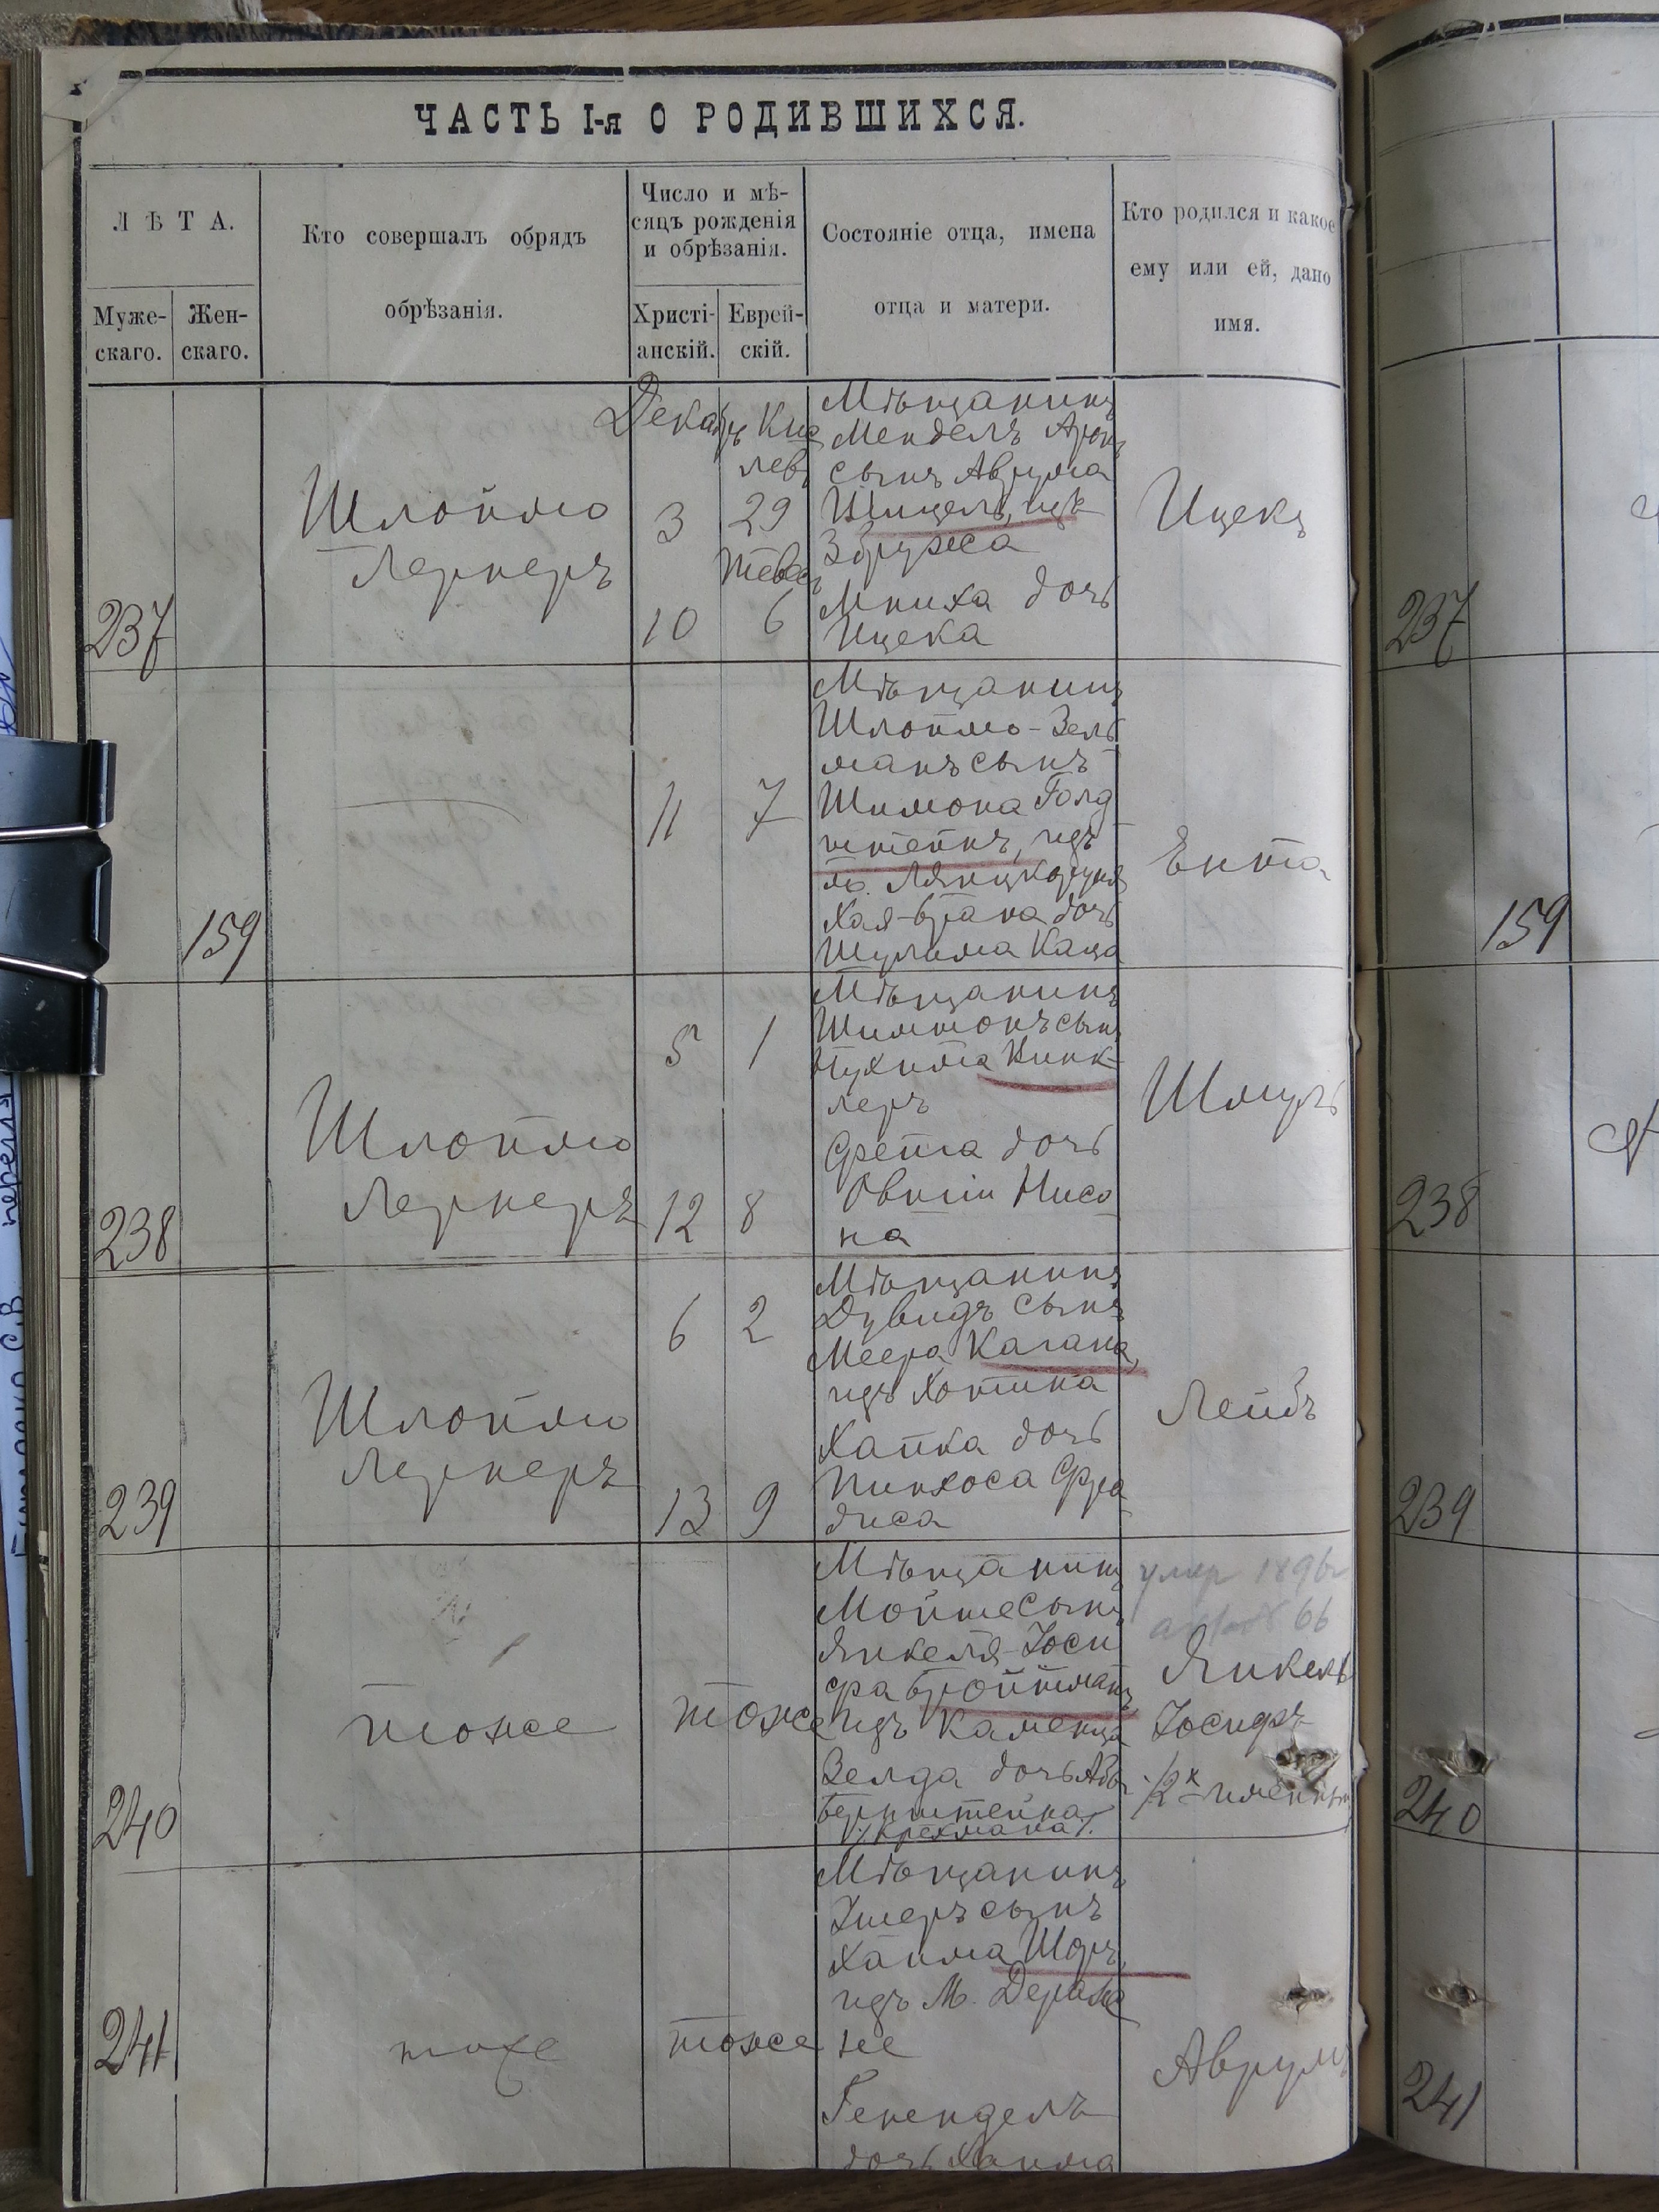 ЧАСТЬ I-я О РОДИВШИХСЯ.
ЛѢТА.
Муже-
скаго.
Жен-
скаго.
Кто совершалъ обрядъ
обрѣзанія.
Число и мѣ-
сяцъ рожденія
и обрѣзанія.
Христі-
анскій.
Еврей-
скій.
Состояніе отца, имена
отца и матери.
Кто родился и какое
ему или ей, дано
имя.
237
Шлоймо
Лернеръ
Декабрь
3
10
Кис
левъ
29
Тевесъ
6
Мѣщанинъ
Мендель Аронъ
сынъ Аврума
изъ
Збружса
Мниха дочь
Ицека
Ицекъ
159
11
7
Мѣщанинъ
Шлоймо-Зель
манъ сынъ
Шимона Голд
штейнъ, изъ
м. Лянцкоруня
Хая-Брана дочь
Шулима Каца
Ента
238
Шлоймо
Лернеръ
5
12
1
8
Мѣщанинъ
Шимшонъ сынъ
Нухима Винк-
леръ
Фейга дочь
Овшія Нисо
на
Шмуль
239
Шлоймо
Лернеръ
6
13
2
9
Мѣщанинъ
Дувидъ сынъ
Меера Кагана,
изъ Хотина
Хайка дочь
Пинхоса Фра
диса
Лейбъ
240
тоже
тоже
Мѣщанинъ
Мойше сынъ
Янкеля-Іоси
фа Бройтманъ,
изъ Каменца
Зелда дочь
Бернштейна
умер 1896
66
Янкель
Іосифъ
2х именный
241
тоже
тоже
Мѣщанинъ
Ушеръ сынъ
Хаима Шоръ,
изъ М. Деражс
не
Генендель
дочь Хаима
Аврумъ
237
159
238
239
240
241